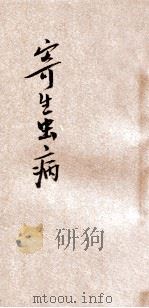 寄生虫病
研狗
mtoou.info